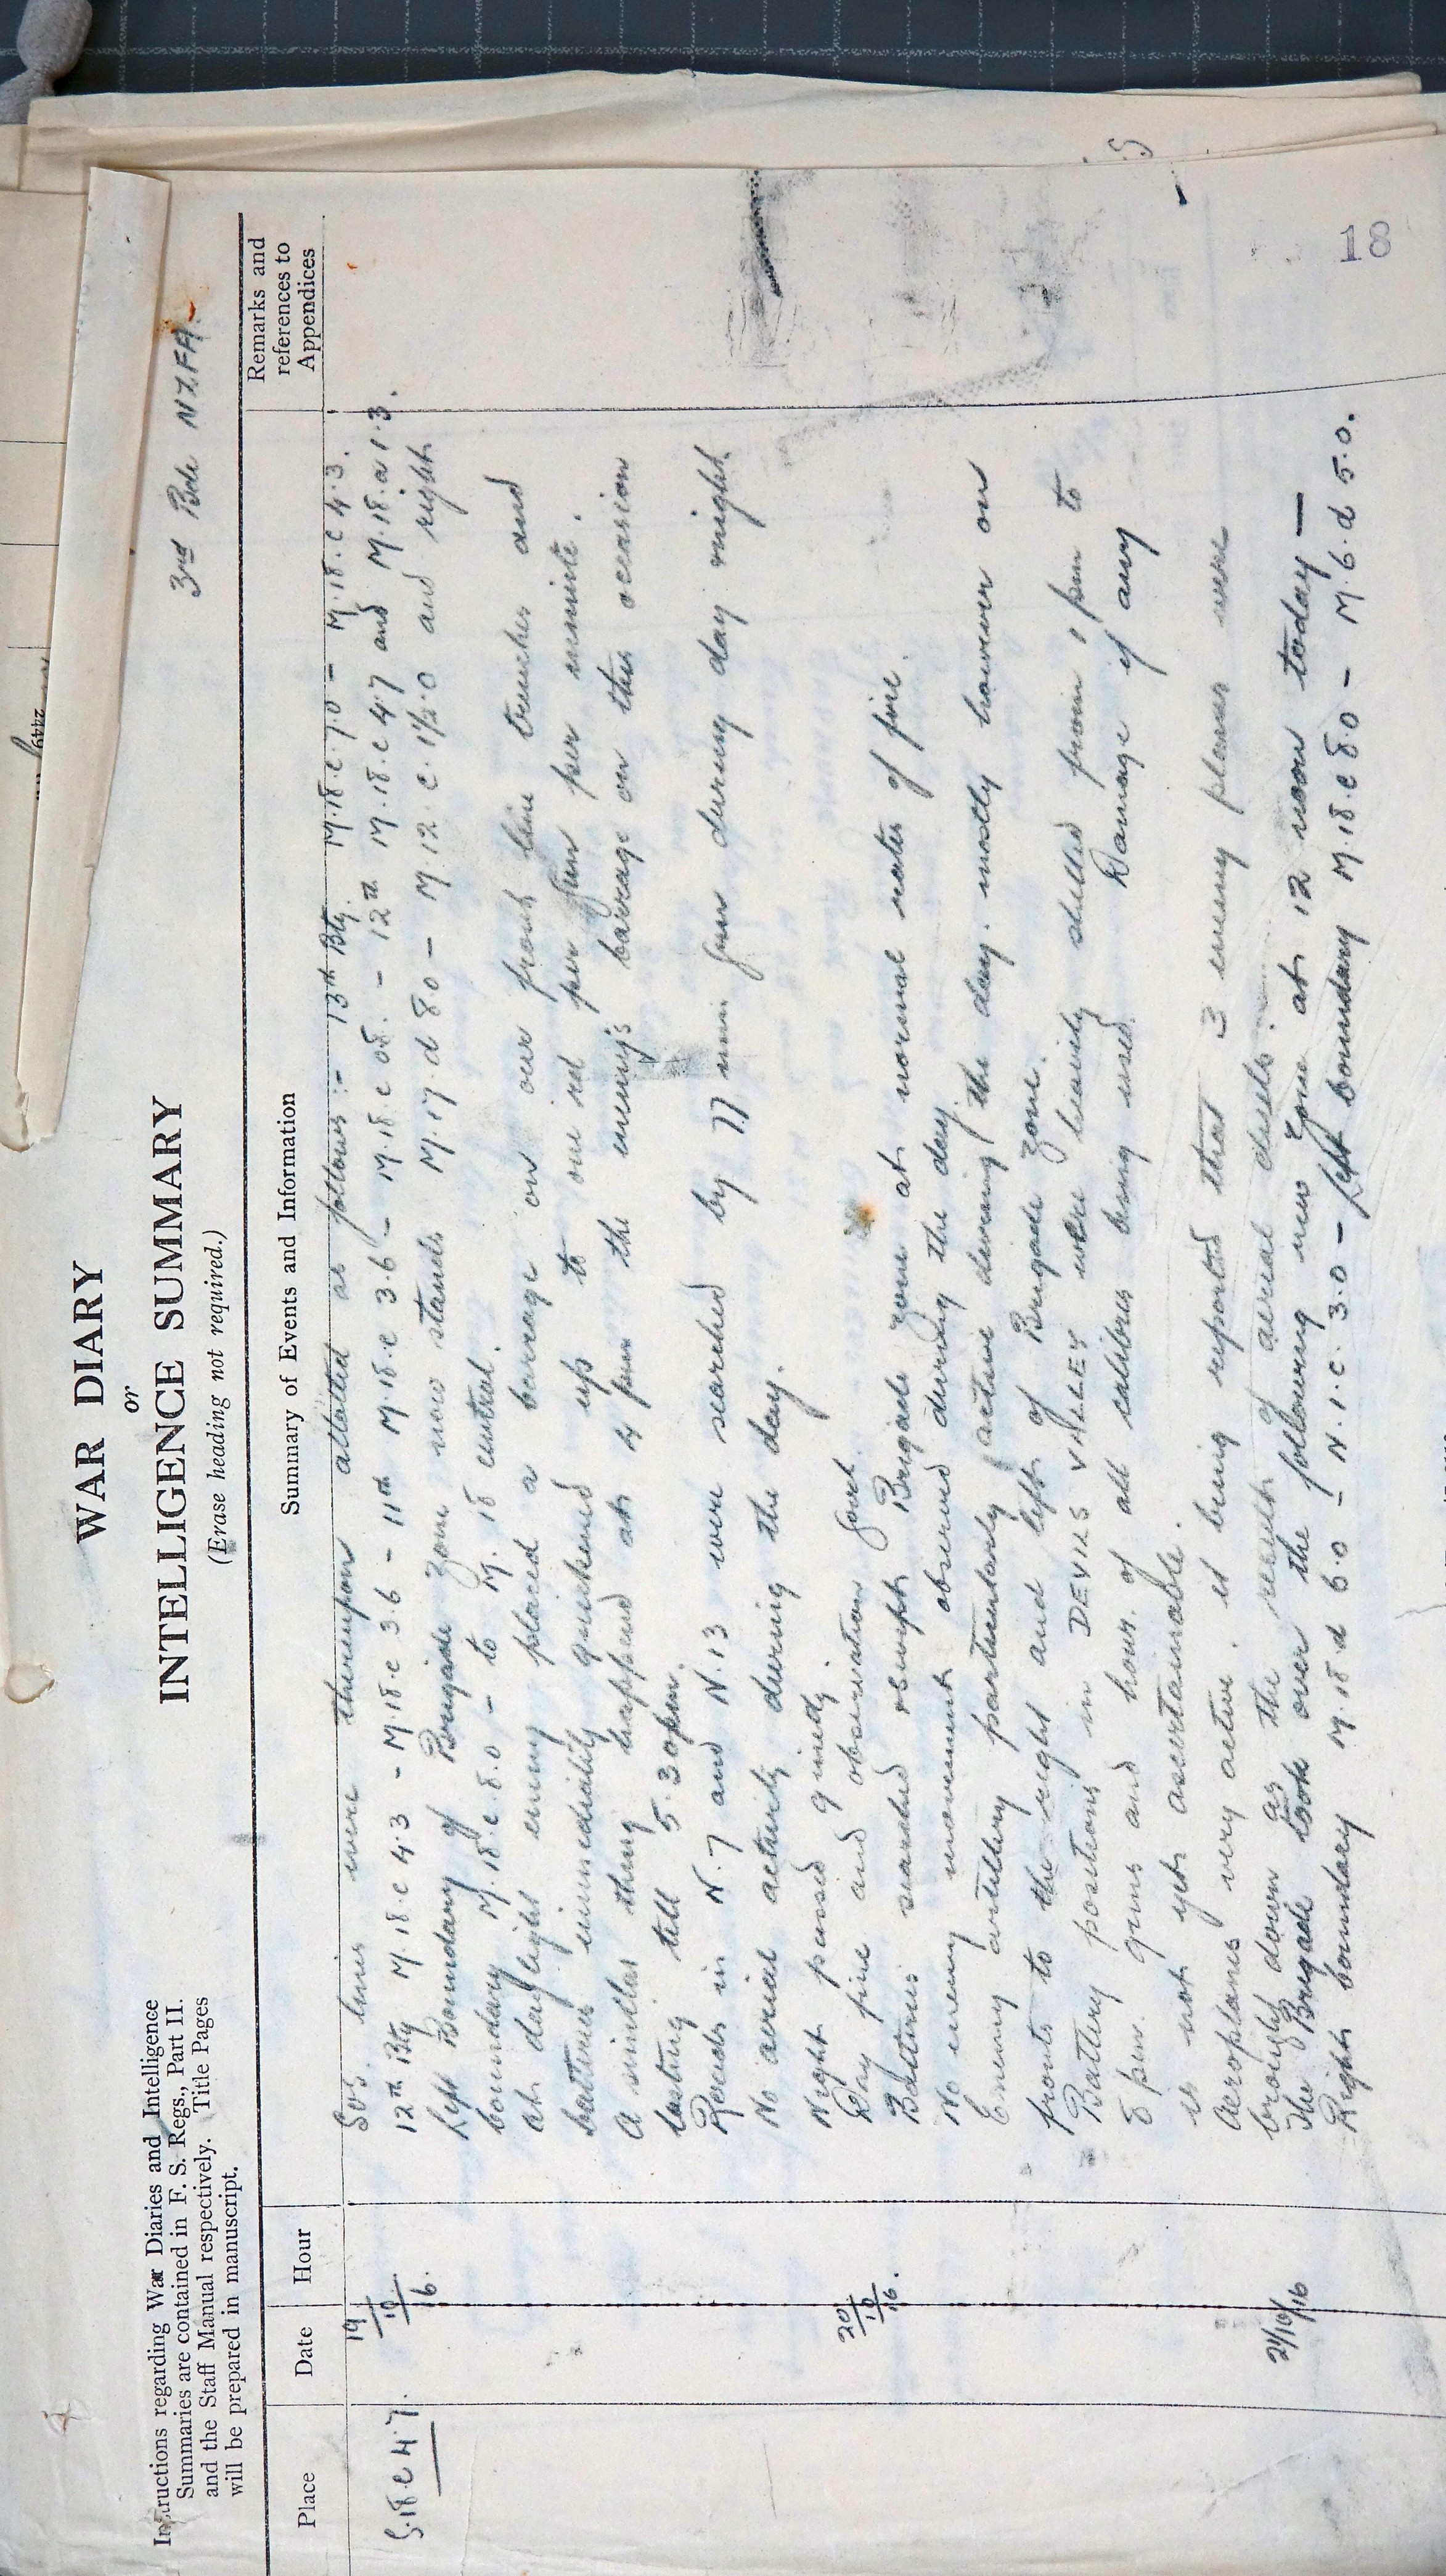 2449
WAR DIARY
or
INTELLIGENCE SUMMARY
(Erase heading not required.)
Instructions regarding War Diaries and Intelligence
Summaries are contained in F. S. Regs., Part II.
and the Staff Manual respectively. Title Pages
will be prepared in manuscript.
3rd Bde NZFA.
Place
Date
Hour
Summary of Events and Information
Remarks and
references to
Appendices
S.18.c.4.7.
19/10/16.
SOS lines were thereupon allotted as follows :- 13th Bty. M.18.c.7.0 - M.18.c 4.3.
12th Bty M.18.c 4.3 - M.18.c 3.6 - 11th M.18.c 3.6 - M.18.c 08. - 12th M.18.c 4.7 and M.18.a 1.3.
Left Boundary of Brigade Zone now stands M.17.d 80 - M.12.c.1½.0 and right
boundary M.18.c.8.0 - to M.18 central.
At daylight enemy placed a barrage on our front line trenches and
batteries immediately quickened up to one rd per gun per minute.
A similar thing happened at 4 pm the enemy's barrage on this occasion
lasting till 5.30pm.
Roads in N.7 and N.13 were searched by 77 mm gun during day night
No aerial activity during the day.
20/10/16.
Night passed quietly.
Day fine and observation good.
Batteries searched Brigade zone at normal rates of fire.
No enemy movement observed during the day.
Enemy artillery particularly active during the day. mostly however on
fronts to the right and left of Brigade zone.
Battery positions in DEVILS VALLEY were heavily shelled from 1 pm to
8 pm. guns and hows. of all calibres being used. Damage if any
is not yet ascertainable.
Aeroplanes very active. it being reported that 3 enemy planes were
brought down as the result of aerial duels.
21/10/16
The Brigade took over the following new zone at 12 noon today —
Right boundary M.18.d 6.0 - N.1.c. 3.0 - left boundary M.18.c 80 - M.6.d 5.0.
18